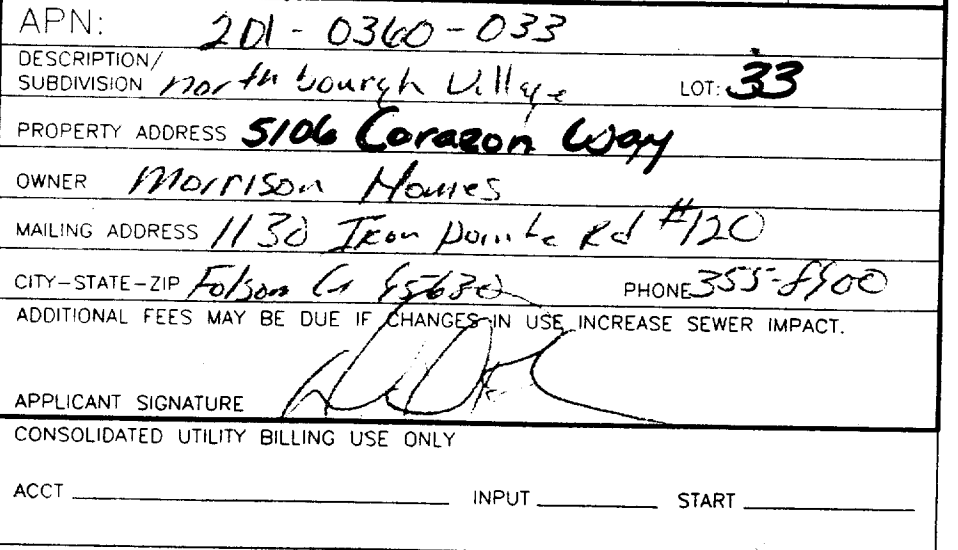 APN: 201-0360-033
DESCRIPTION/
SUBDIVISION northbourgh Village LOT: 33
PROPERTY ADDRESS 5106 Corazon Way
OWNER Morrison Homes
MAILING ADDRESS 1130 Iron Pointe Rd #120
CITY-STATE-ZIP Folsom Ca 95630 PHONE 355-8900
ADDITIONAL FEES MAY BE DUE IF CHANGES IN USE INCREASE SEWER IMPACT.
APPLICANT SIGNATURE
CONSOLIDATED UTILITY BILLING USE ONLY
ACCT INPUT START